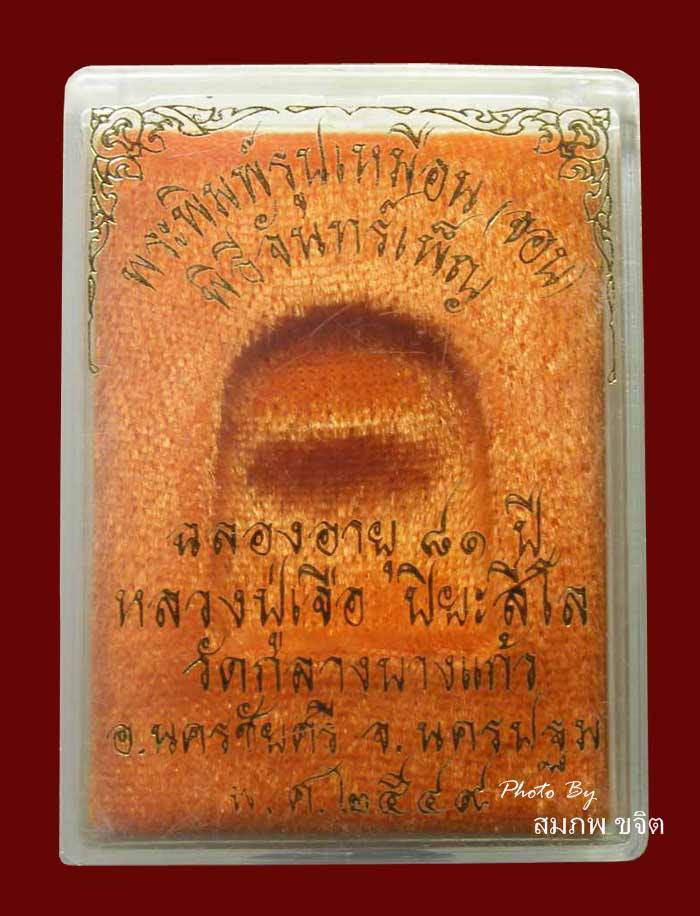 พระพิมพ์รูปเหมือน (ซอน)
พิธี จันทร์เพ็ญ
ฉลองอายุ ๘๑ ปี
หลวงปู่เจือ ปิยะสีโล
วัดกลางบางแก้ว
อ.นครชัยศรี จ.นครปฐม
พ.ศ.๒๕๔๙
Photo By
สมภพ ขจิต